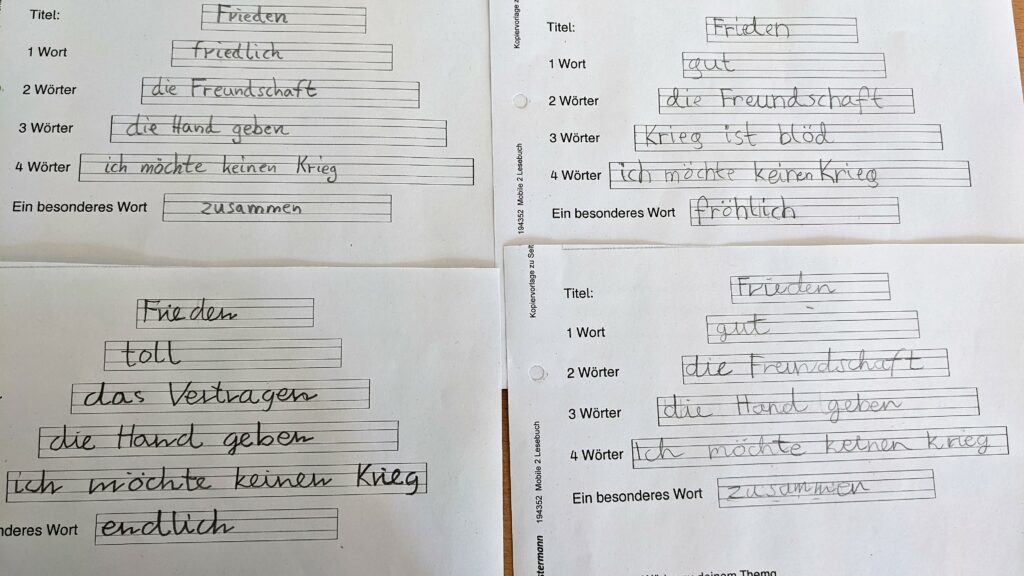 Titel: Frieden
1 Wort friedlich
2 Wörter die Freundschaft
3 Wörter die Hand geben
4 Wörter ich möchte keinen Krieg
Ein besonderes Wort zusammen
Titel: Frieden
1 Wort gut
2 Wörter die Freundschaft
3 Wörter Krieg ist blöd
4 Wörter ich möchte keinen Krieg
Ein besonderes Wort fröhlich
194352 Mobile 2 Lesebuch
Kopiervorlage
Frieden
toll
das Vertragen
die Hand geben
ich möchte keinen Krieg
nderes Wort endlich
Titel: Frieden
1 Wort gut
2 Wörter die Freundschaft
3 Wörter die Hand geben
4 Wörter Ich möchte keinen krieg
Ein besonderes Wort zusammen
Kopiervorlage zu Seit
194352 Mobile 2 Lesebuch
stermann
zu deinem Thema